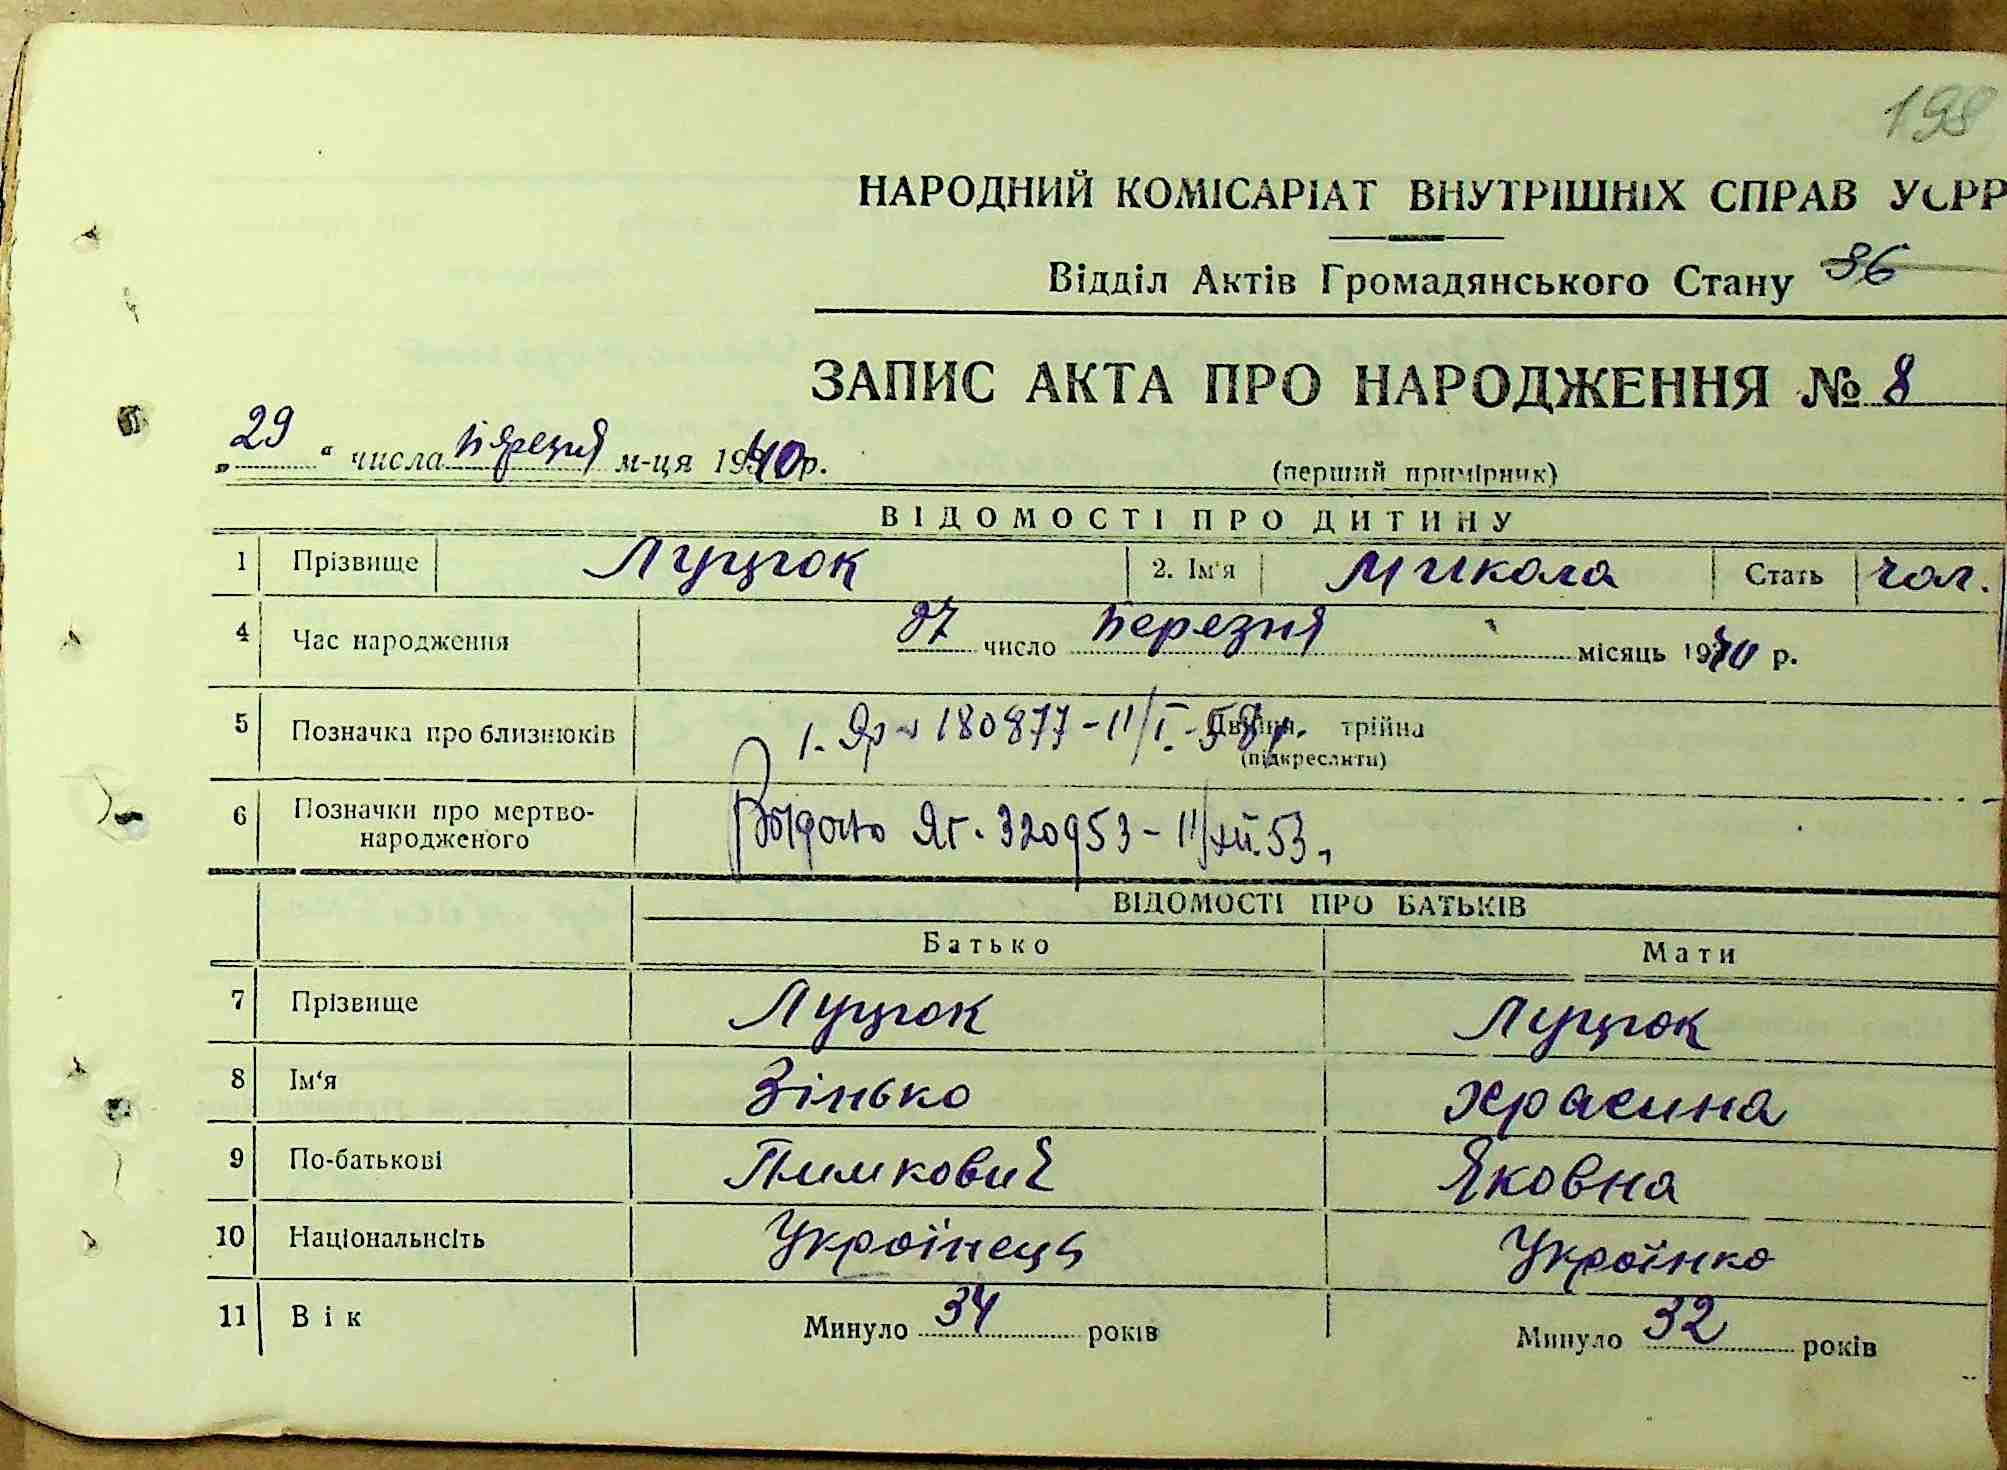 198
НАРОДНИЙ КОМІСАРІАТ ВНУТРІШНІХ СПРАВ УСРР
Відділ Актів Громадянського Стану 36
ЗАПИС АКТА ПРО НАРОДЖЕННЯ № 8
„29“ числа березня м-ця 1940 р. (перший примірник)
ВІДОМОСТІ ПРО ДИТИНУ
1 Прізвище Луцюк 2. Ім'я Микола Стать чол.
4 Час народження 27 число березня місяць 1940 р.
5 Позначка про близнюків Двійня, трійня
(підкреслити)
180877-11/I-58р.
6 Позначки про мертво-
народженого
Выдано ЯГ. 320953-11/XII.53.
ВІДОМОСТІ ПРО БАТЬКІВ
Батько Мати
7 Прізвище Луцюк Луцюк
8 Ім'я Зінько Храсина
9 По-батькові Пимкович Яковна
10 Національнсіть Українець Українко
11 Вік Минуло 34 років Минуло 32 років